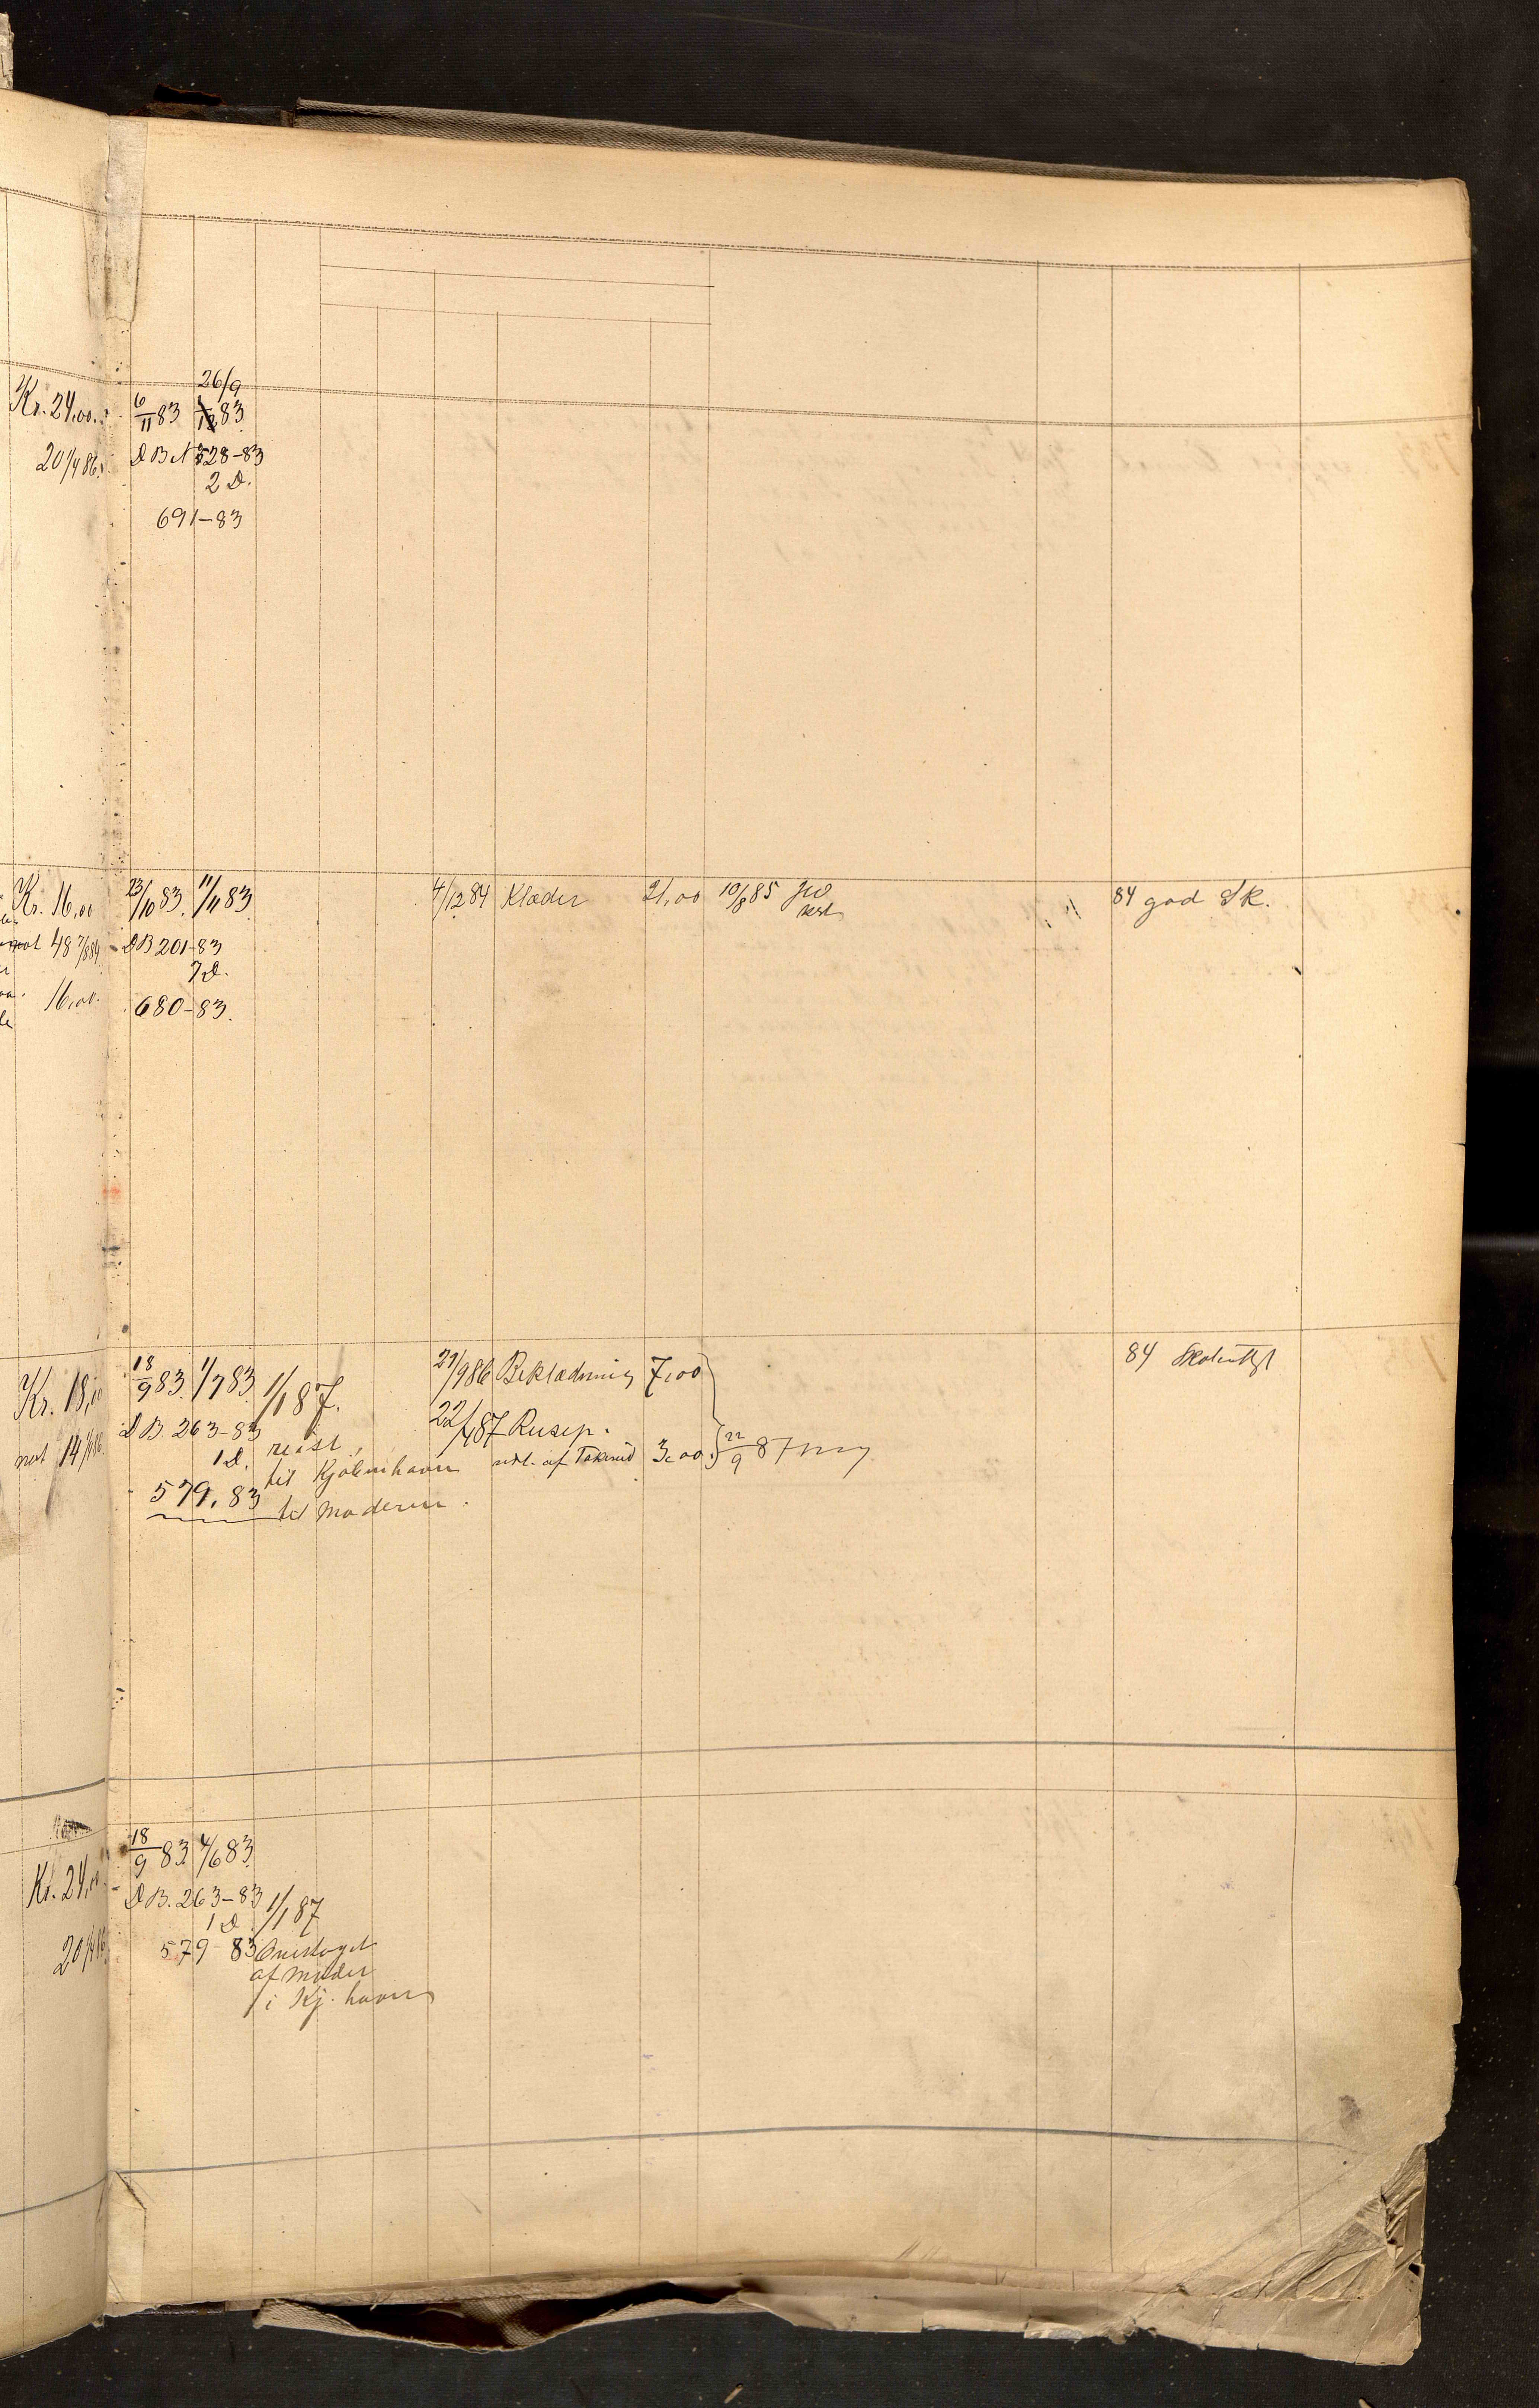 Kr. 24,00. 6/11 83 26/9 83
20 1/4 86. D B N 328-83
2 D.
691-83
Kr. 16,00 23/10 83. 1/11 83 4/12 84 Klæder 21,00 10/8 85 84 god Sk.
48 7/8 84 D B 201-83
7 D.
16,00. 680-83.
Kr. 18,00 18/9 83. 1/7 83 1/1 87. 29/9 86 Beklædning 7,00 84
14 1/4 86 D B. 263-83 22/4 87
1 D. reist af 3,00 22/9 87
til Kjøbenhavn
579. 83 til Moderen.
Kr. 24,00 18/9 83 4/6 83
D B. 263-83 1/1 87
1 D
20 1/4 86 579 83 Overtaget
af Moder
i Kj. havn